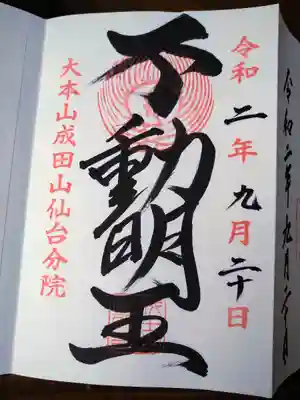 令和二年九月二十日
不動明王
大本山成田山仙台分院
令和二年九月二十日